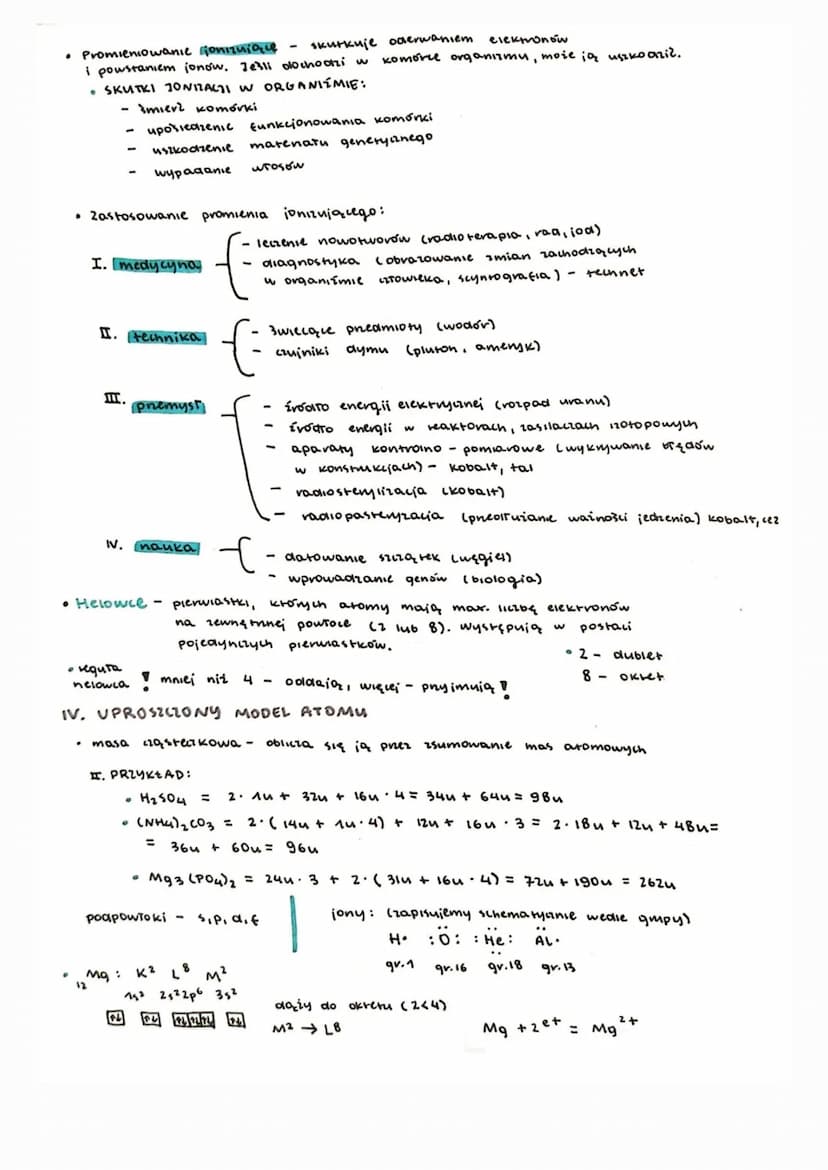 • Promieniowanie jonizujące – skutkuje oderwaniem elektronów
i powstaniem jonów. Jeśli dochodzi w komórce organizmu, może ją uszkodzić.
• SKUTKI JONIZACJI W ORGANIŹMIE:
– śmierć komórki
– upośledzenie funkcjonowania komórki
– uszkodzenie materiału genetycznego
– wypadanie włosów
• Zastosowanie promienia jonizującego:
I. medycyna
– leczenie nowotworów (radioterapia, rad, jod)
– diagnostyka (obrazowanie zmian zachodzących
w organiźmie człowieka, scyntografia) – technet
II. technika
– świecące przedmioty (wodór)
– czujniki dymu (pluton, ameryk)
III. przemysł
– źródło energii elektrycznej (rozpad uranu)
– źródło energii w reaktorach, zasilaczach izotopowych
– aparaty kontrolno – pomiarowe (wykrywanie błędów
w konstrukcjach) – kobalt, tal
– radiosterylizacja (kobalt)
– radiopasteryzacja (przedłużanie ważności jedzenia) kobalt, cez
IV. nauka
– datowanie szczątek (węgiel)
– wprowadzanie genów (biologia)
• Helowce – pierwiastki, których atomy mają max. liczbę elektronów
na zewnętrznej powłoce (2 lub 8). Występują w postaci
pojedynczych pierwiastków.
• 2 – dublet
8 – oktet
• reguła
helowca ! mniej niż 4 – oddają, więcej – przyjmują !
IV. UPROSZCZONY MODEL ATOMU
• masa cząsteczkowa – oblicza się ją przez zsumowanie mas atomowych
II. PRZYKŁAD:
• H₂SO₄ = 2 · 1u + 32u + 16u · 4 = 34u + 64u = 98u
• (NH₄)₂CO₃ = 2 · (14u + 1u · 4) + 12u + 16u · 3 = 2 · 18u + 12u + 48u =
= 36u + 60u = 96u
• Mg₃(PO₄)₂ = 24u · 3 + 2 · (31u + 16u · 4) = 72u + 190u = 262u
podpowłoki – s, p, d, f
jony: (zapisujemy schematycznie wedle grupy)
H· :Ö: :He: Al·
gr.1 gr.16 gr.18 gr.13
• ₁₂Mg : K² L⁸ M²
1s² 2s²2p⁶ 3s²
dąży do oktetu (2<4)
M² → L⁸
Mg + 2e⁺ = Mg²⁺